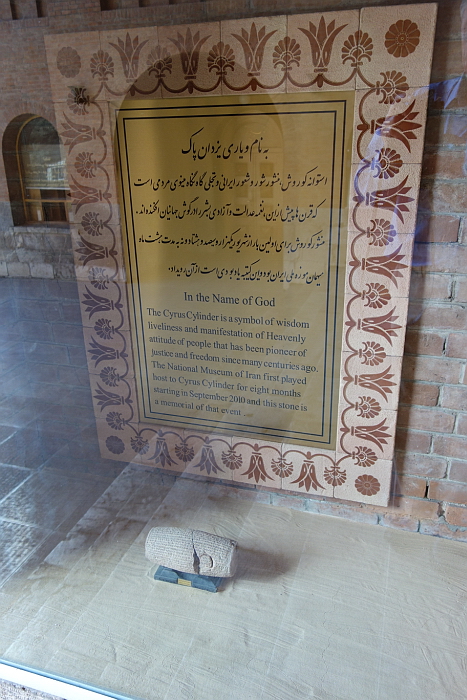 به نام و یاری یزدان پاک
استوانه کوروش، منشور شور و شعور ایرانی و تجلی گاه نگاه مینوی مردمی است
که قرن ها پیش از این نغمه عدالت و آزادی بشر را در گوش جهانیان افکنده اند.
منشور کوروش برای اولین بار از شهریور یکهزار و سیصد و هشتاد و نه به مدت هشت ماه
میهمان موزه ملی ایران بود و این کتیبه یادبودی است از آن رویداد.
In the Name of God
The Cyrus Cylinder is a symbol of wisdom
liveliness and manifestation of Heavenly
attitude of people that has been pioneer of
justice and freedom since many centuries ago.
The National Museum of Iran first played
host to Cyrus Cylinder for eight months
starting in September 2010 and this stone is
a memorial of that event ...